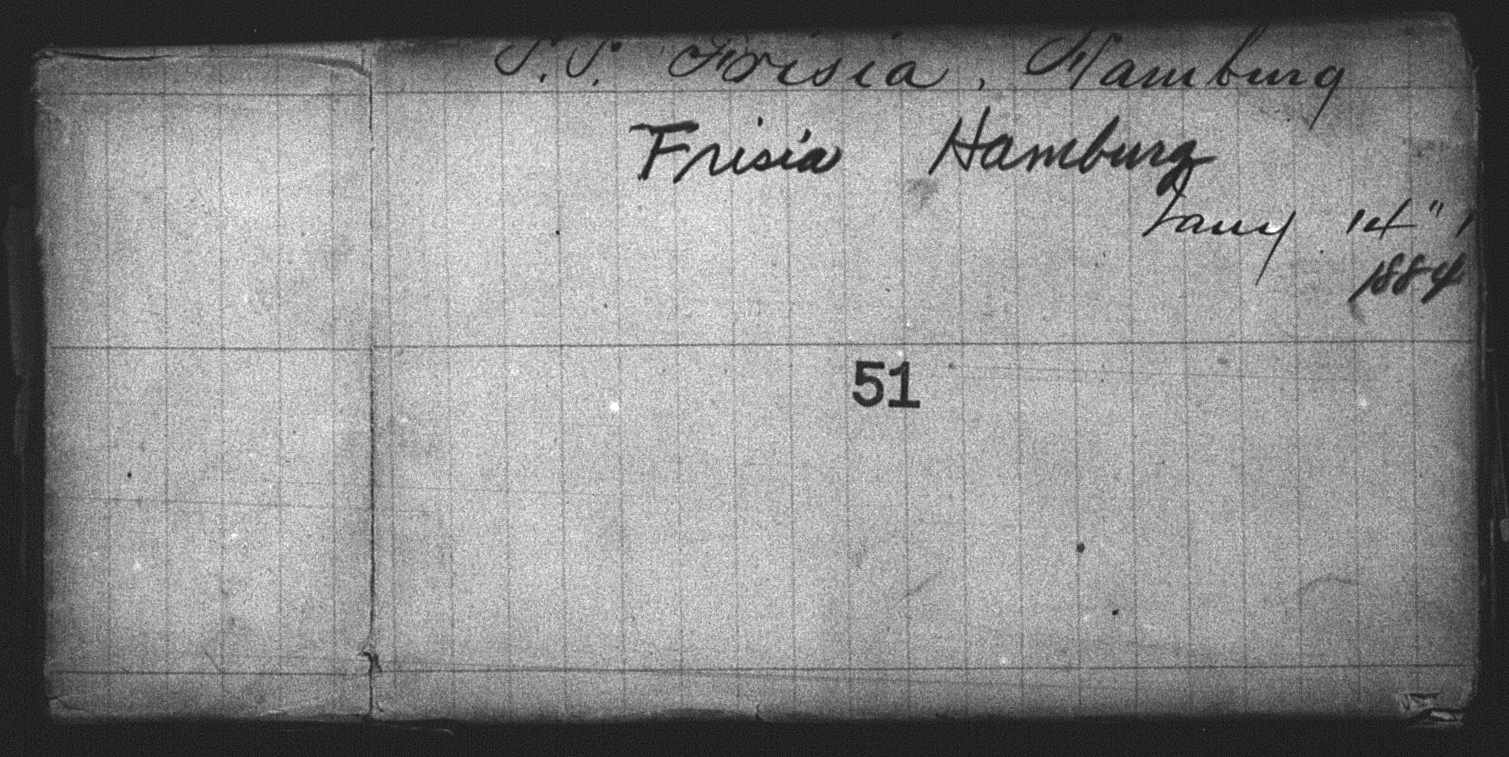 S.S. Frisia, Hamburg
Frisia Hamburg
Jany 14"
1884
51